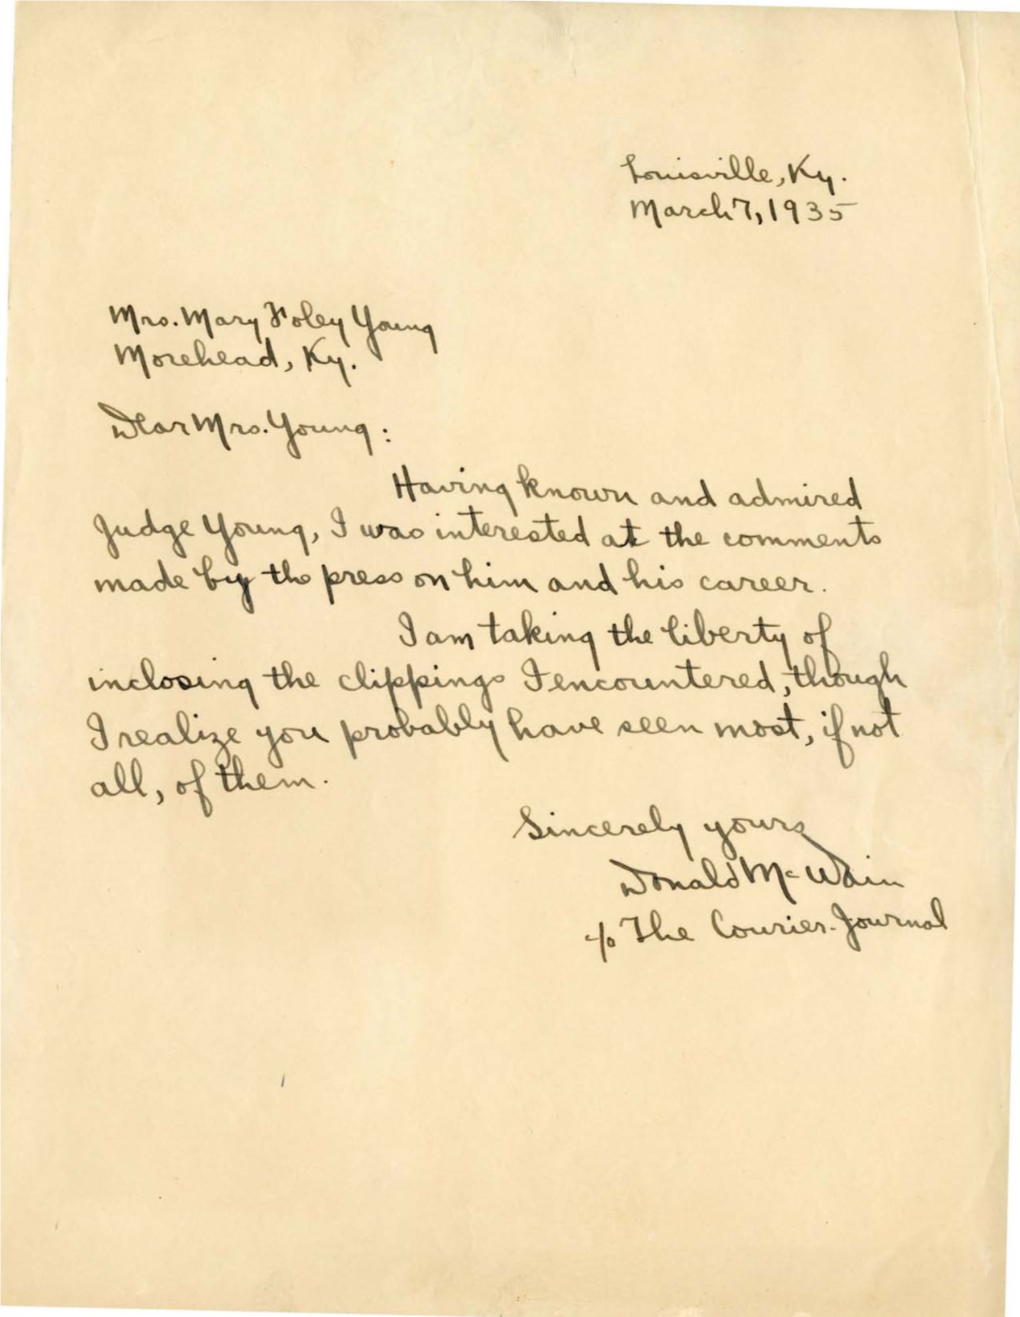 Louisville, Ky.
March 7, 1935
Mrs. Mary Foley Young
Morehead, Ky.
Dear Mrs. Young:
Having known and admired
Judge Young, I was interested at the comments
made by the press on him and his career.
I am taking the liberty of
inclosing the clippings I encountered, though
I realize you probably have seen most, if not
all, of them.
Sincerely yours
Donald McWain
c/o The Courier-Journal